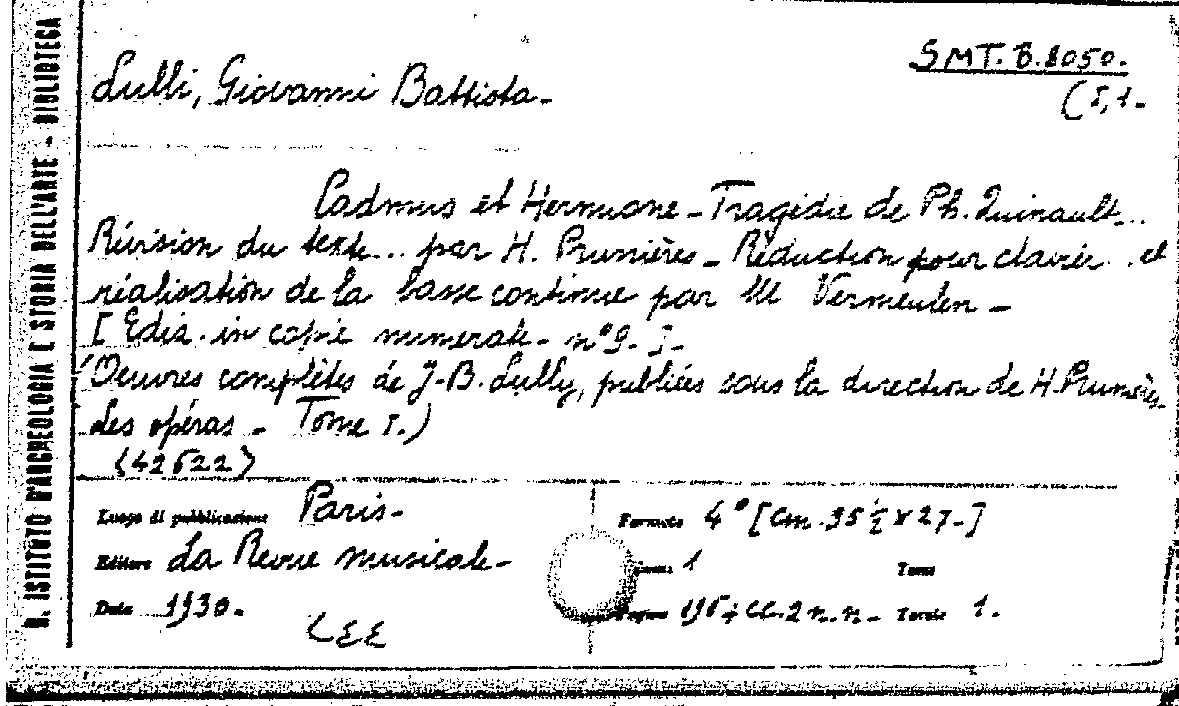 R. ISTITUTO D'ARCHEOLOGIA E STORIA DELL'ARTE - BIBLIOTECA
SMT. B. 8050.
Lulli, Giovanni Battista -
(I,1.
Cadmus et Hermione - Tragédie de Ph. Quinault...
Révision du texte... par H. Prunières - Réduction pour clavier... et
réalisation de la basse continue par M Vermeulen -
[Ediz. in copie numerate - n° 9 - ] -
(Oeuvres complètes de J-B. Lully, publiées sous la direction de H. Prunières
Les opéras - Tome I.)
(42622)
Luogo di pubblicazione Paris -
Formato 4° [cm. 35 ½ x 27 - ]
Editore La Revue musicale -
1 Tomi
Data 1930.
Pagine cc. 2 n. n. - Tavole 1.